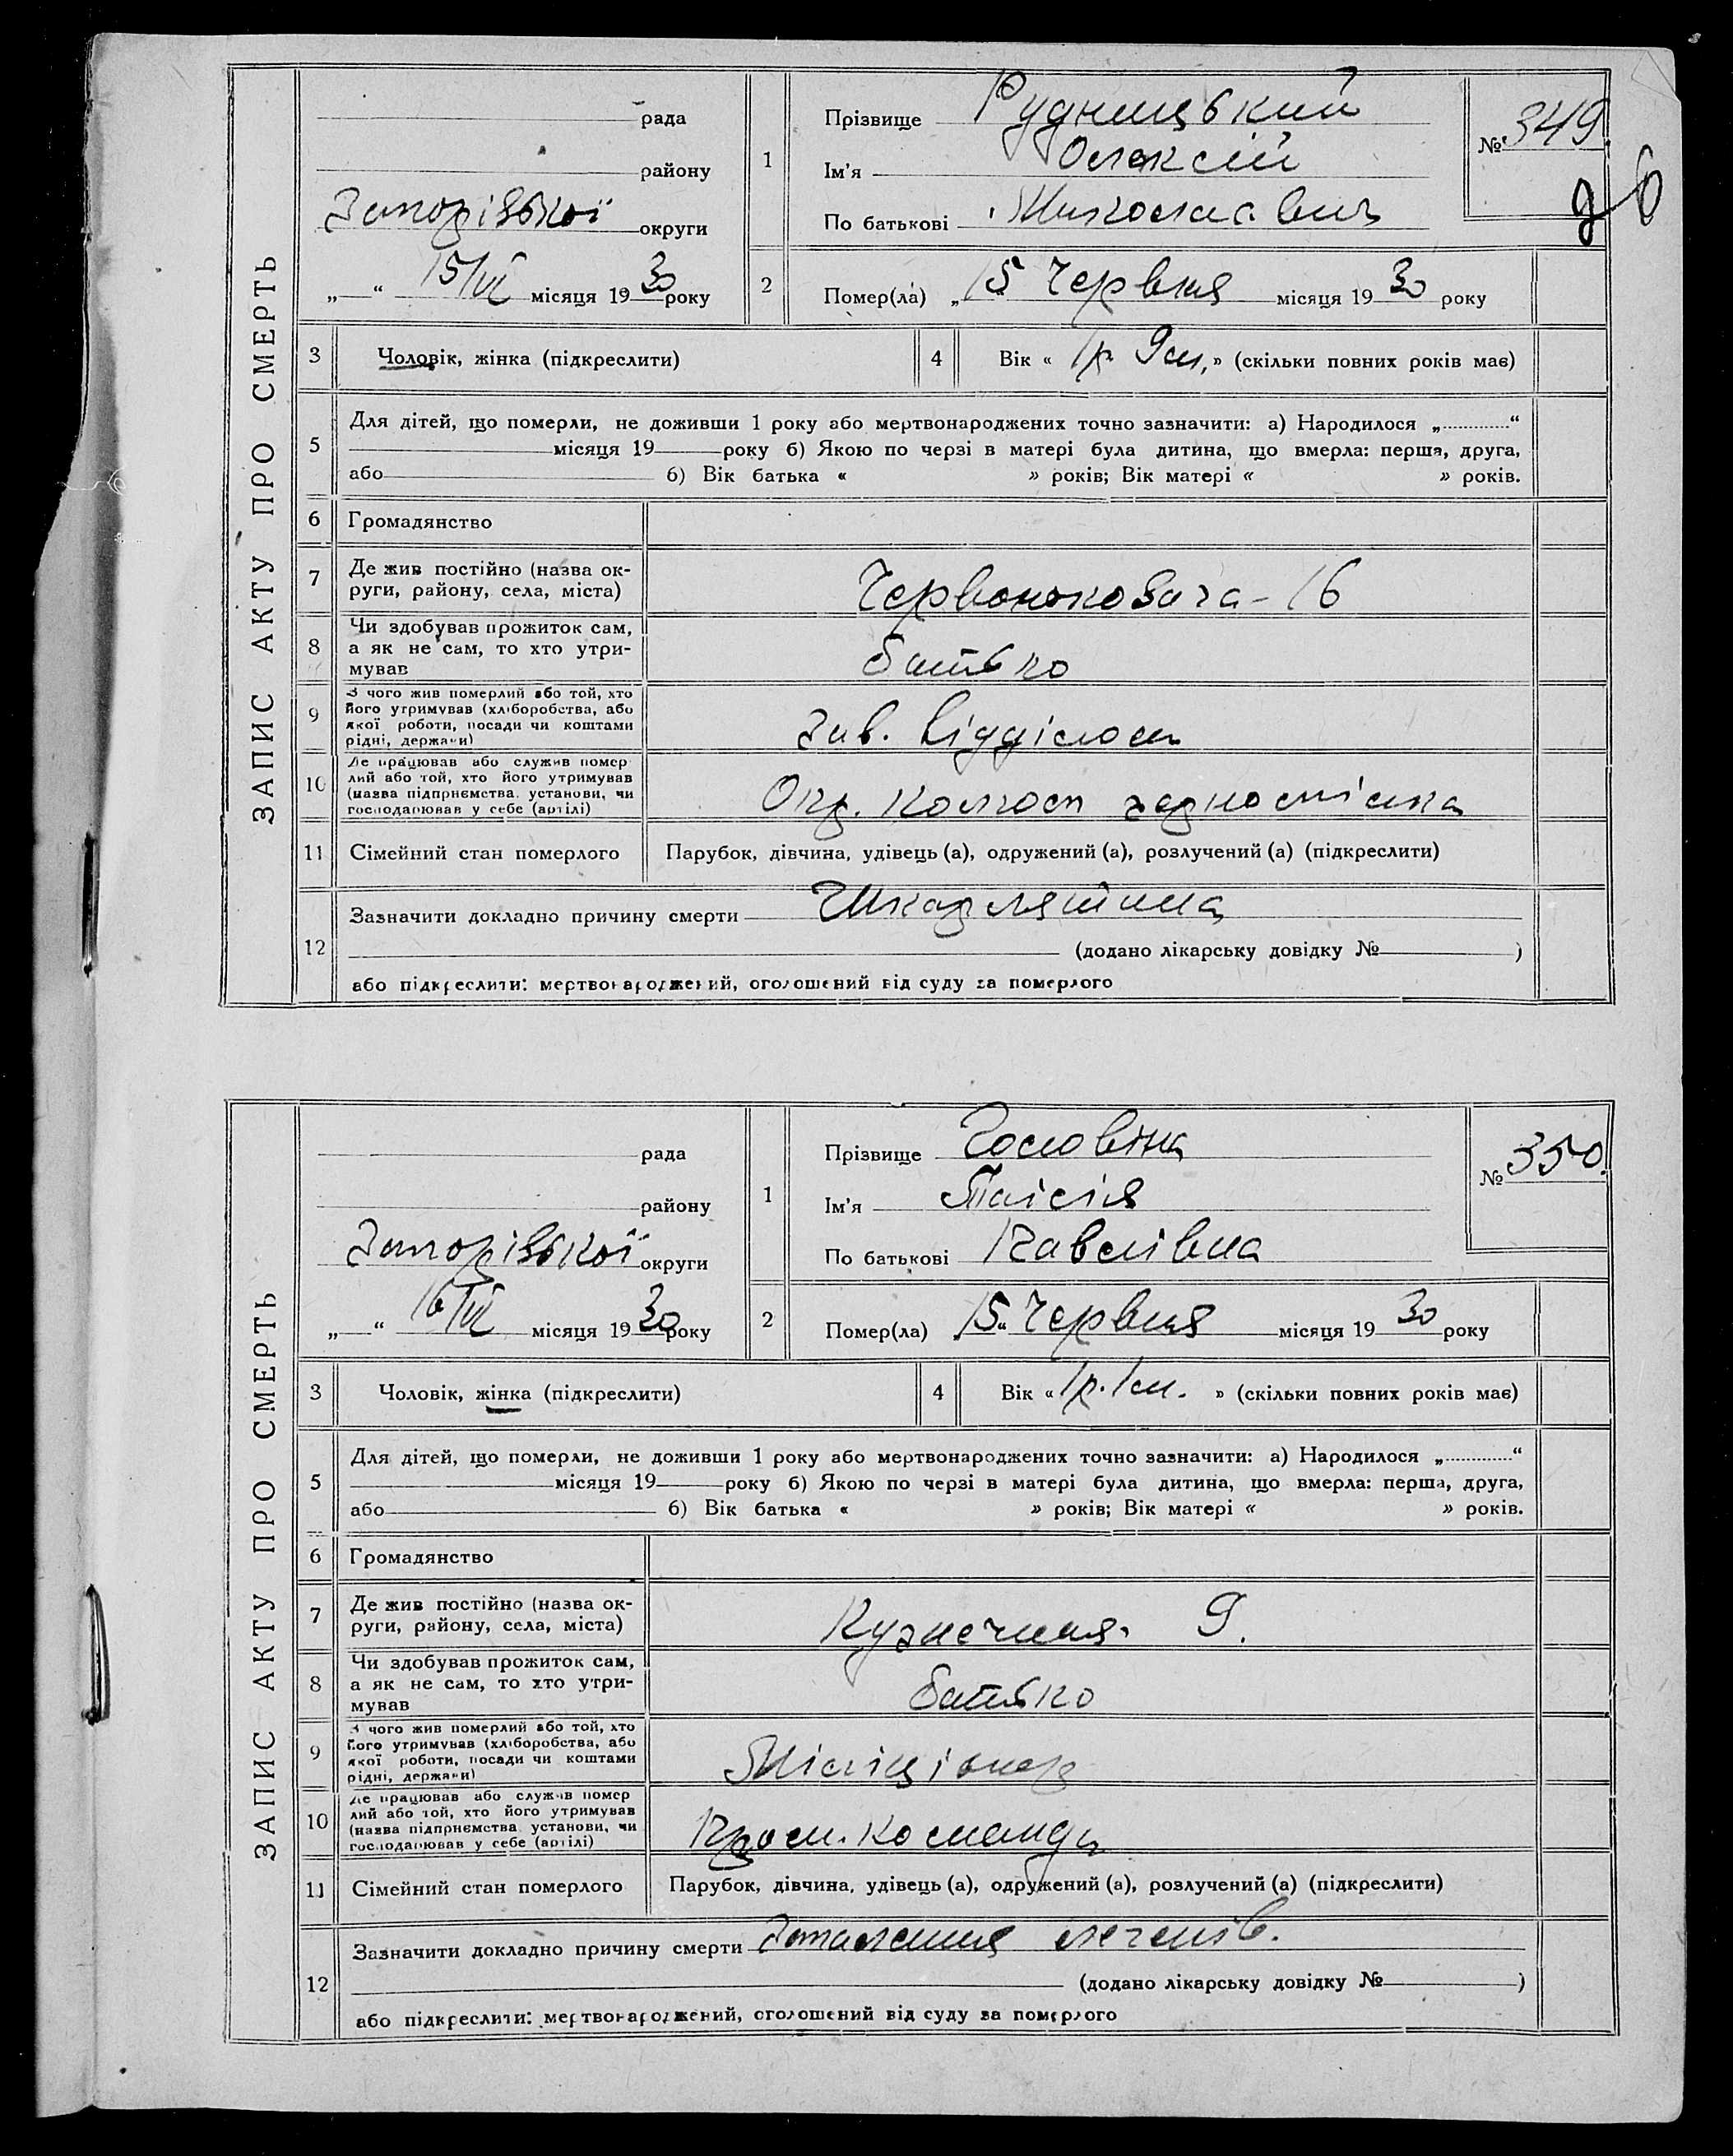 ЗАПИС АКТУ ПРО СМЕРТЬ
рада
району
Запорізької округи
„—“ 15/VI місяця 1930 року
1
Прізвище Рудницький
Ім'я Олексій
По батькові Миколаєвич
№ 349.
26
2
Помер(ла) „15 Червня місяця 1930 року
3 Чоловік, жінка (підкреслити)
4 Вік « 1 р. 9 м. » (скільки повних років має)
5 Для дітей, що померли, не доживши 1 року або мертвонароджених точно зазначити: а) Народилося „............“
місяця 19 року б) Якою по черзі в матері була дитина, що вмерла: перша, друга,
або 6) Вік батька « » років; Вік матері « » років.
6 Громадянство
7 Де жив постійно (назва ок-
руги, району, села, міста)
Червонокозача - 16
8 Чи здобував прожиток сам,
а як не сам, то хто утри-
мував
батько
9 З чого жив померлий або той, хто
його утримував (хліборобства, або
якої роботи, посади чи коштами
рідні, держави)
Зав. відділом
10 Де працював або служив помер
лий або той, хто його утримував
(назва підприємства, установи, чи
господарював у себе (артілі)
Окр. колгосп
11 Сімейний стан померлого
Парубок, дівчина, удівець (а), одружений (а), розлучений (а) (підкреслити)
12 Зазначити докладно причину смерти Шкарлятина
(додано лікарську довідку № )
або підкреслити: мертвонароджений, оголошений від суду за померлого
ЗАПИС АКТУ ПРО СМЕРТЬ
рада
району
Запорізької округи
„—“ 16/VI місяця 1930 року
1
Прізвище Головіна
Ім'я Таісія
По батькові Павлівна
№ 350.
2
Помер(ла) „15“ Червня місяця 1930 року
3 Чоловік, жінка (підкреслити)
4 Вік « 1 р. 1 м. » (скільки повних років має)
5 Для дітей, що померли, не доживши 1 року або мертвонароджених точно зазначити: а) Народилося „............“
місяця 19 року б) Якою по черзі в матері була дитина, що вмерла: перша, друга,
або 6) Вік батька « » років; Вік матері « » років.
6 Громадянство
7 Де жив постійно (назва ок-
руги, району, села, міста)
Кузнечная 9.
8 Чи здобував прожиток сам,
а як не сам, то хто утри-
мував
батько
9 З чого жив померлий або той, хто
його утримував (хліборобства, або
якої роботи, посади чи коштами
рідні, держави)
Міліціонер
10 Де працював або служив помер
лий або той, хто його утримував
(назва підприємства, установи, чи
господарював у себе (артілі)
Пром. команда
11 Сімейний стан померлого
Парубок, дівчина, удівець (а), одружений (а), розлучений (а) (підкреслити)
12 Зазначити докладно причину смерти Запалення легенів.
(додано лікарську довідку № )
або підкреслити: мертвонароджений, оголошений від суду за померлого